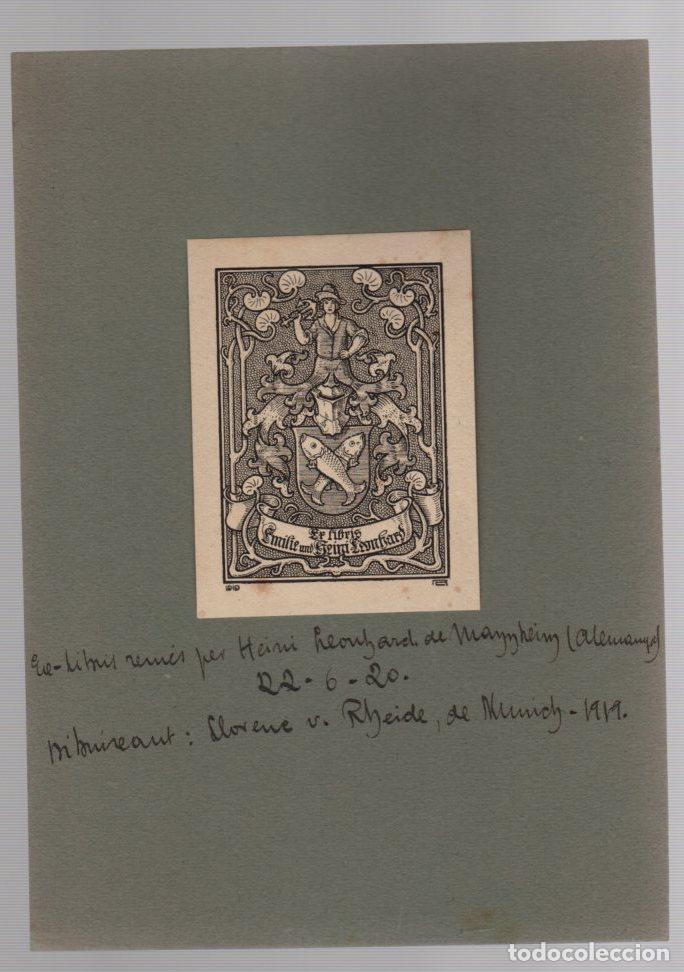 Ex libris
Emilie und Heini Leonhard
1919
Ex-libris remés per Heini Leonhard. de Mannheim (Alemanya)
22-6-20.
Dibuixant: Llorenc v. Rheide, de Munich-1919.
todocoleccion